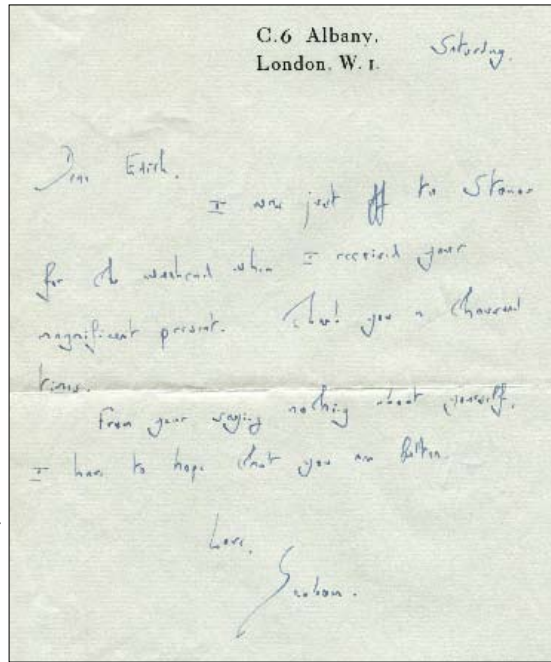 C.6 Albany.
London. W. 1.
Saturday.
Dear Edith.
I was just off to Stonor
for the weekend when I received your
magnificent present. Thank you a thousand
times.
From your saying nothing about yourself,
I have to hope that you are better.
Love,
Graham.